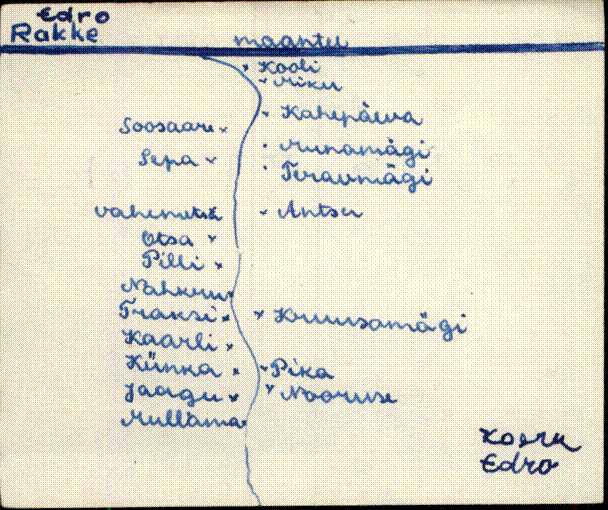 Edro
Rakke
maantee
Kooli
Miku
Kahepäeva
Soosaare
Munamägi
Sepa
Teravmägi
Vahemetsa
Antsu
Otsa
Pilli
Nahkuri
Traksi
Kruusamägi
Kaarli
Künka
Pika
Jaagu
Nooruse
Mullama
Koeru
Edro